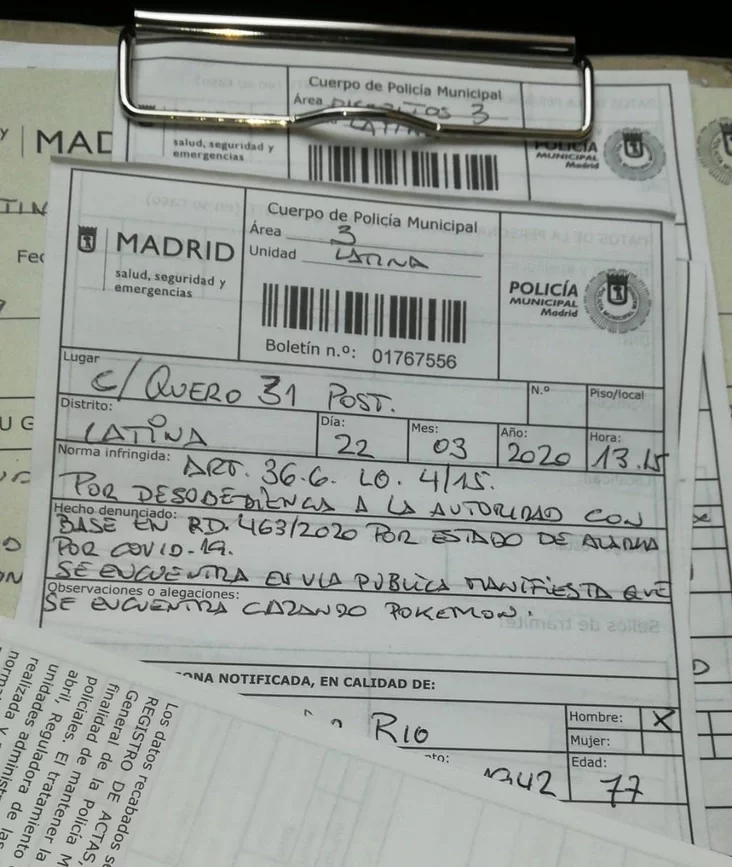 Cuerpo de Policía Municipal
Área DISTRITOS 3
LATINA
MAD
salud, seguridad y
emergencias
POLICÍA
MUNICIPAL
Madrid
Cuerpo de Policía Municipal
Área 3
Unidad LATINA
MADRID
salud, seguridad y
emergencias
POLICÍA
MUNICIPAL
Madrid
Boletín n.º: 01767556
Lugar
C/ QUERO 31 POST.
N.º
Piso/local
Distrito:
LATINA
Día:
22
Mes:
03
Año:
2020
Hora:
13.15
Norma infringida:
ART. 36.6. LO. 4/15.
POR DESOBEDIENCA A LA AUTORIDAD CON
Hecho denunciado:
BASE EN RD. 463/2020 POR ESTADO DE ALARMA
POR COVID-19.
SE ENCUENTRA EN VIA PUBLICA MANIFIESTA QUE
Observaciones o alegaciones:
SE ENCUENTRA CAZANDO POKEMON.
NA NOTIFICADA, EN CALIDAD DE:
RIO
Hombre: X
Mujer:
Edad:
77
1942
Los datos recabados se
REGISTRO DE ACTAS,
General de la Policía M
finalidad de mantener la
policiales. El tratamiento
abril, Reguladora de la
unidades administ
realizada y
norma